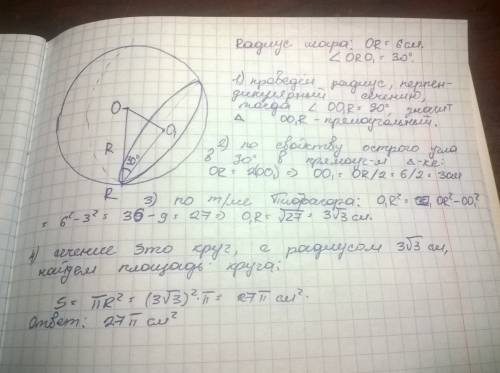 Радиус шара: OR = 6 см.
∠ ORO₁ = 30°.
1) проведём радиус, перпен-
дикулярный сечению,
тогда ∠ OO₁R = 90°, значит
△ OO₁R - прямоугольный.
2) по свойству острого угла
в 30° в прямоуг-м △-ке:
OR = 2OO₁ ⇒ OO₁ = OR/2 = 6/2 = 3см
3) по т/ме Пифагора: O₁R² = OR² - OO₁²
= 6² - 3² = 36 - 9 = 27 ⇒ O₁R = √27 = 3√3 см.
4) сечение это круг, с радиусом 3√3 см,
найдём площадь круга:
S = πR² = (3√3)²·π = 27π см².
Ответ: 27π см²
O
O₁
R
30°
R